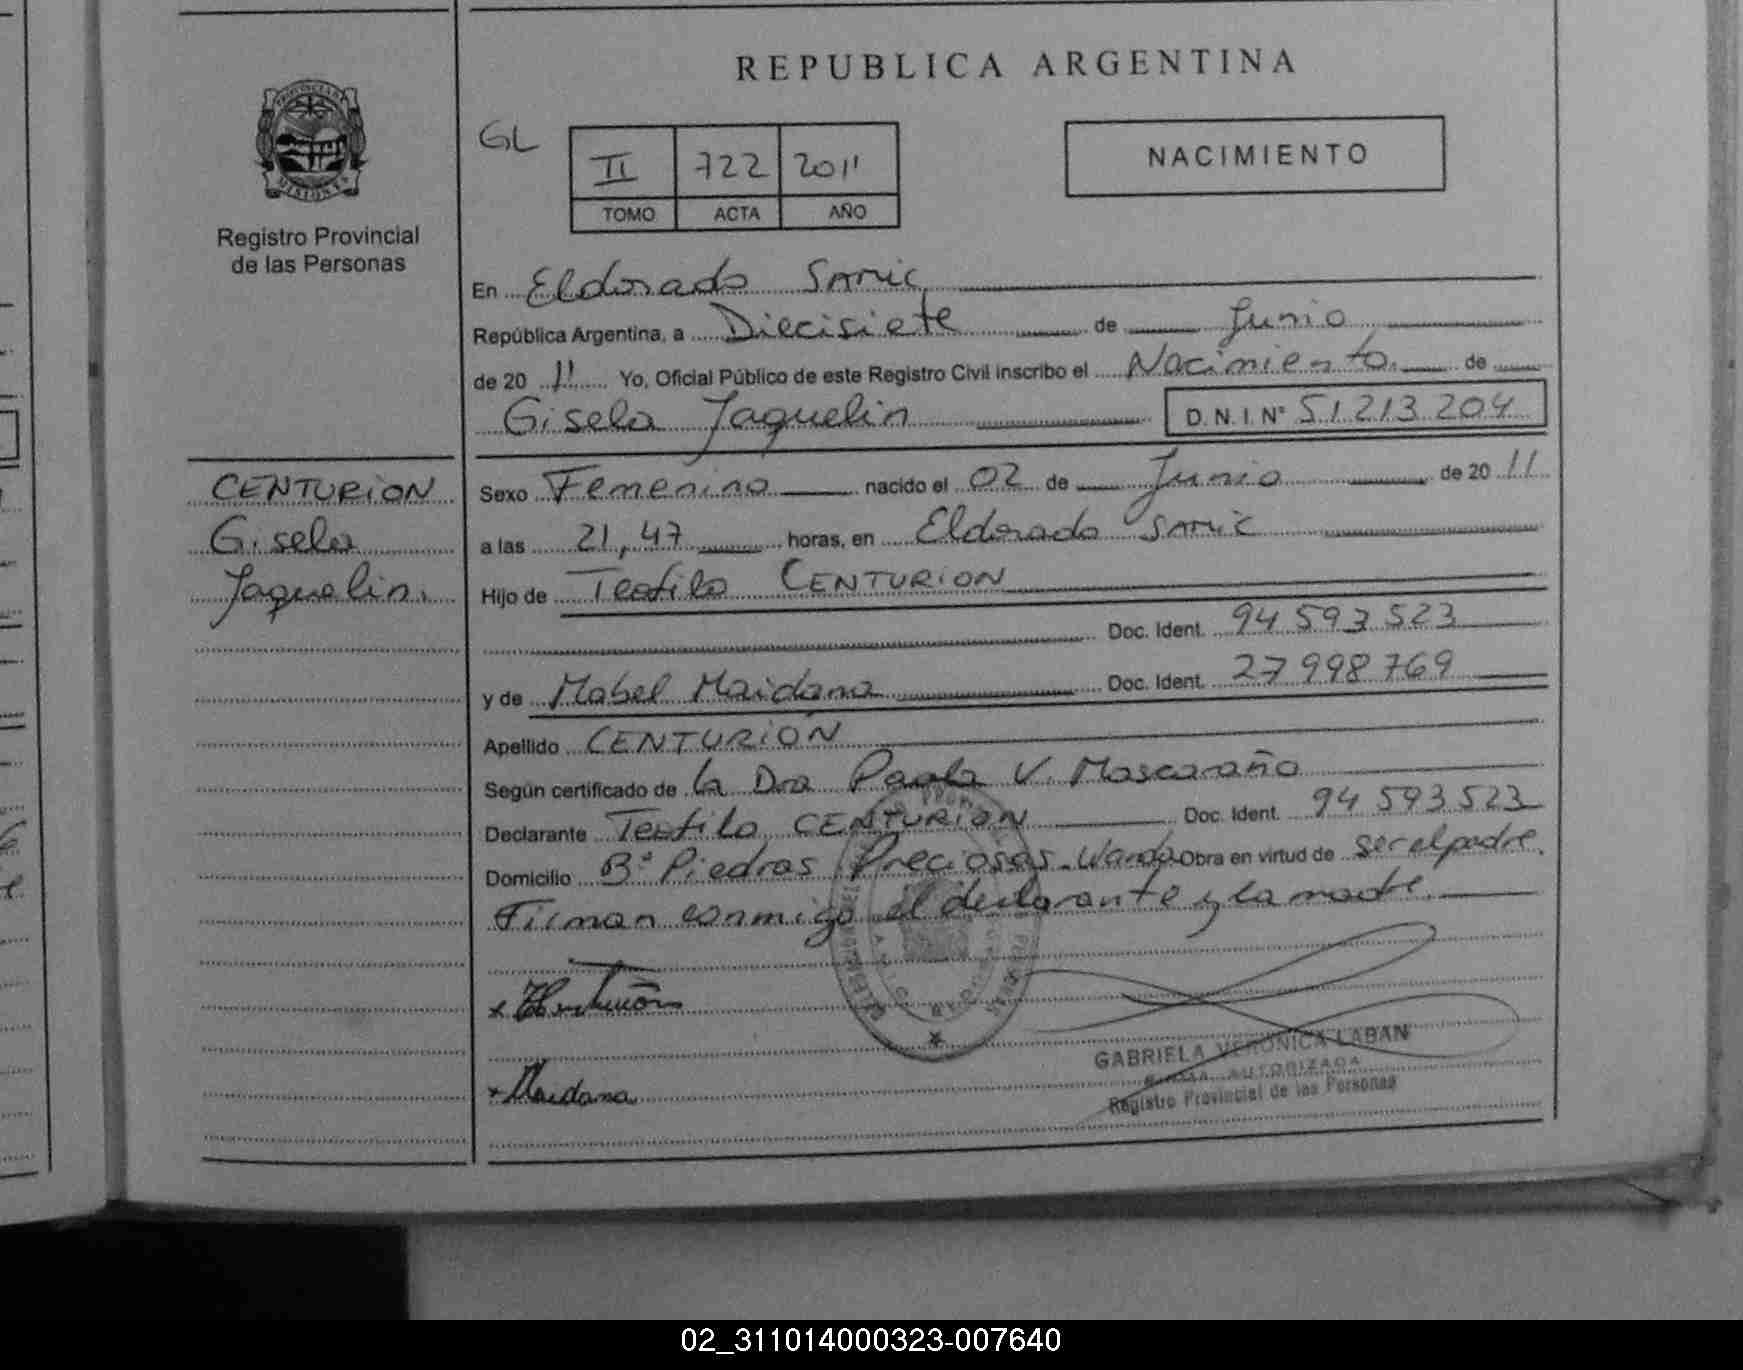 REPUBLICA ARGENTINA
PROVINCIA DE MISIONES
Registro Provincial
de las Personas
GL
II 722 2011
TOMO ACTA AÑO
NACIMIENTO
En Eldorado SAMIC
República Argentina, a Diecisiete de Junio
de 20 11 Yo, Oficial Público de este Registro Civil inscribo el Nacimiento de
Gisela Jaquelin D.N.I. Nº 51213204
CENTURION
Gisela
Jaquelin.
Sexo Femenino nacido el 02 de Junio de 20 11
a las 21,47 horas, en Eldorado SAMIC
Hijo de Teofilo CENTURION
Doc. Ident. 94 593 523
y de Mabel Maidana Doc. Ident. 27 998 769
Apellido CENTURIÓN
Según certificado de la Dra Paola V. Mascaraño
Declarante Teofilo CENTURION Doc. Ident. 94 593 523
Domicilio Bº Piedras Preciosas - Wanda Obra en virtud de ser el padre.
Firman conmigo el declarante y la madre
Maidana
GABRIELA VERONICA LABAN
FIRMA AUTORIZADA
Registro Provincial de las Personas
02_311014000323-007640